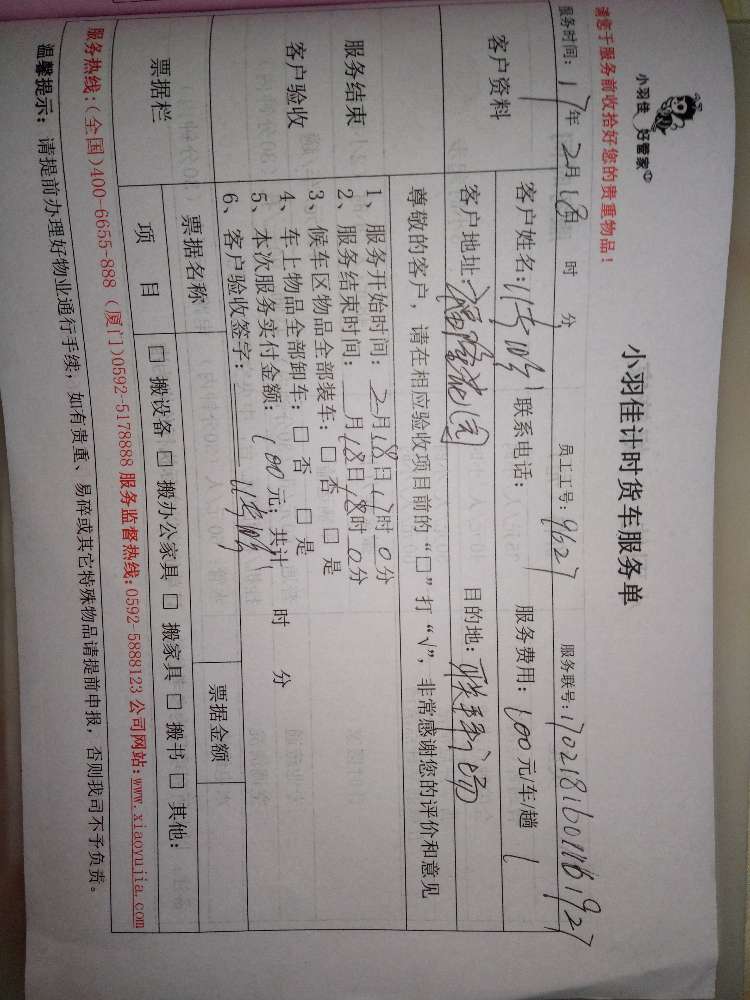 小羽佳 好管家
小羽佳计时货车服务单
请您于服务前收拾好您的贵重物品！
服务时间：17年2月18日 时 分 员工工号：9627 服务联号：
客户资料
客户姓名： 联系电话： 服务费用：100元/车/趟 1
客户地址： 目的地：
尊敬的客户，请在相应验收项目前的“□”打“√”，非常感谢您的评价和意见
服务结束
客户验收
1、服务开始时间：2月18日17时0分
2、服务结束时间： 月18日18时0分
3、候车区物品全部装车：□ 否 □ 是
4、车上物品全部卸车：□ 否 □ 是
5、本次服务实付金额：100元；共计 时 分
6、客户验收签字：
票据栏
票据名称 票据金额
项 目 □ 搬设备 □ 搬办公家具 □ 搬家具 □ 搬书 □ 其他：
服务热线：(全国)400-6655-888 (厦门)0592-5178888 服务监督热线：0592-5888123 公司网站：www.xiaoyujia.com
温馨提示：请提前办理好物业通行手续，如有贵重、易碎或其它特殊物品请提前申报，否则我司不予负责。